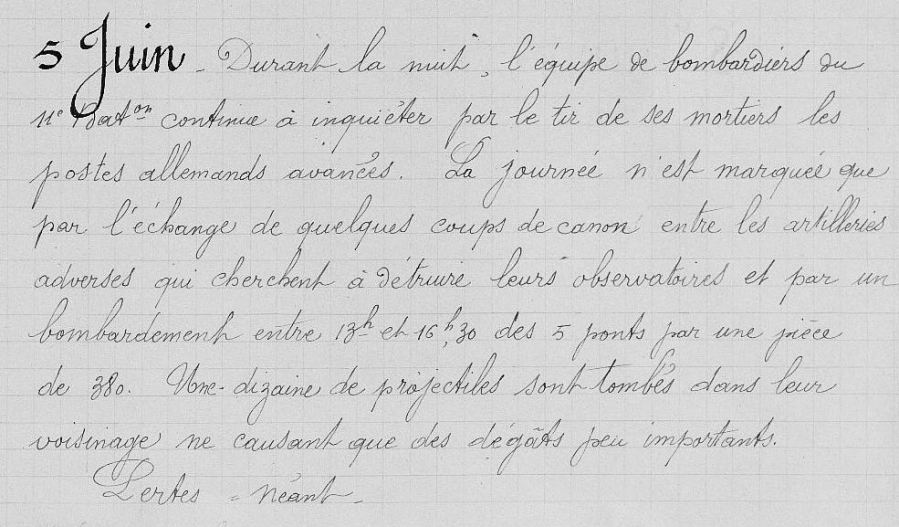 5 Juin - Durant la nuit, l'équipe de bombardiers du
11e Baton continue à inquiéter par le tir de ses mortiers les
postes allemands avancés. La journée n'est marquée que
par l'échange de quelques coups de canon entre les artilleries
adverses qui cherchent à détruire leurs observatoires et par un
bombardement entre 13h et 16h,30 des 5 ponts par une pièce
de 380. Une dizaine de projectiles sont tombés dans leur
voisinage ne causant que des dégâts peu importants.
Pertes = Néant -